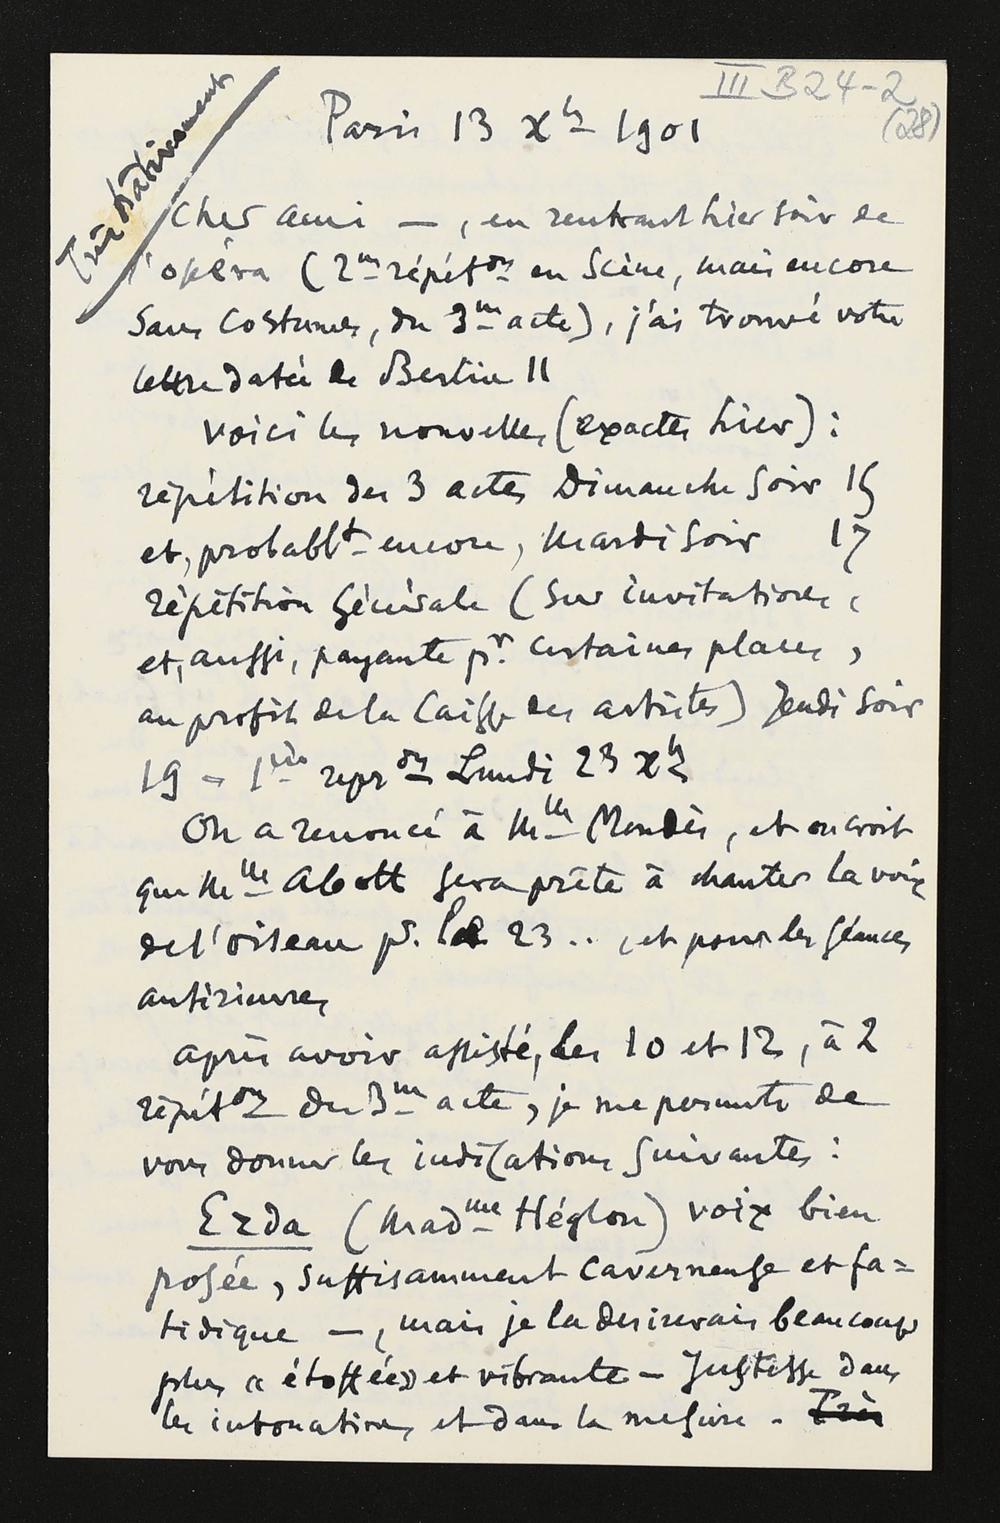 III B 24-2
(28)
Très hâtivement
Paris 13 Xbre 1901
Cher ami —, en rentrant hier soir de
l'opéra (2me répéton en Scène, mais encore
Sans Costumes, du 3me acte), j'ai trouvé votre
lettre datée de Berlin 11
Voici les nouvelles (exactes hier) :
répétition des 3 actes Dimanche Soir 15
et, probablt encore, Mardi Soir 17
Répétition Générale (Sur invitations,
et, aussi, payante pr. certaines places,
au profit de la Caisse des artistes) Jeudi Soir
19 = 1ère repron Lundi 23 Xbre
On a renoncé à Mlle Mendès, et on croit
que Mlle Abott sera prête à chanter la voix
de l'oiseau pr. le 23 .. , et pour les séances
antérieures
après avoir assisté, les 10 et 12, à 2
répétons du 3me acte, je me permets de
vous donner les indications Suivantes :
Erda (Madme Héglon) voix bien
posée, suffisamment Caverneuse et fa=
tidique —, mais je la desirerais beaucoup
plus « étoffée » et vibrante — Justesse dans
les intonations et dans la mesure . Très